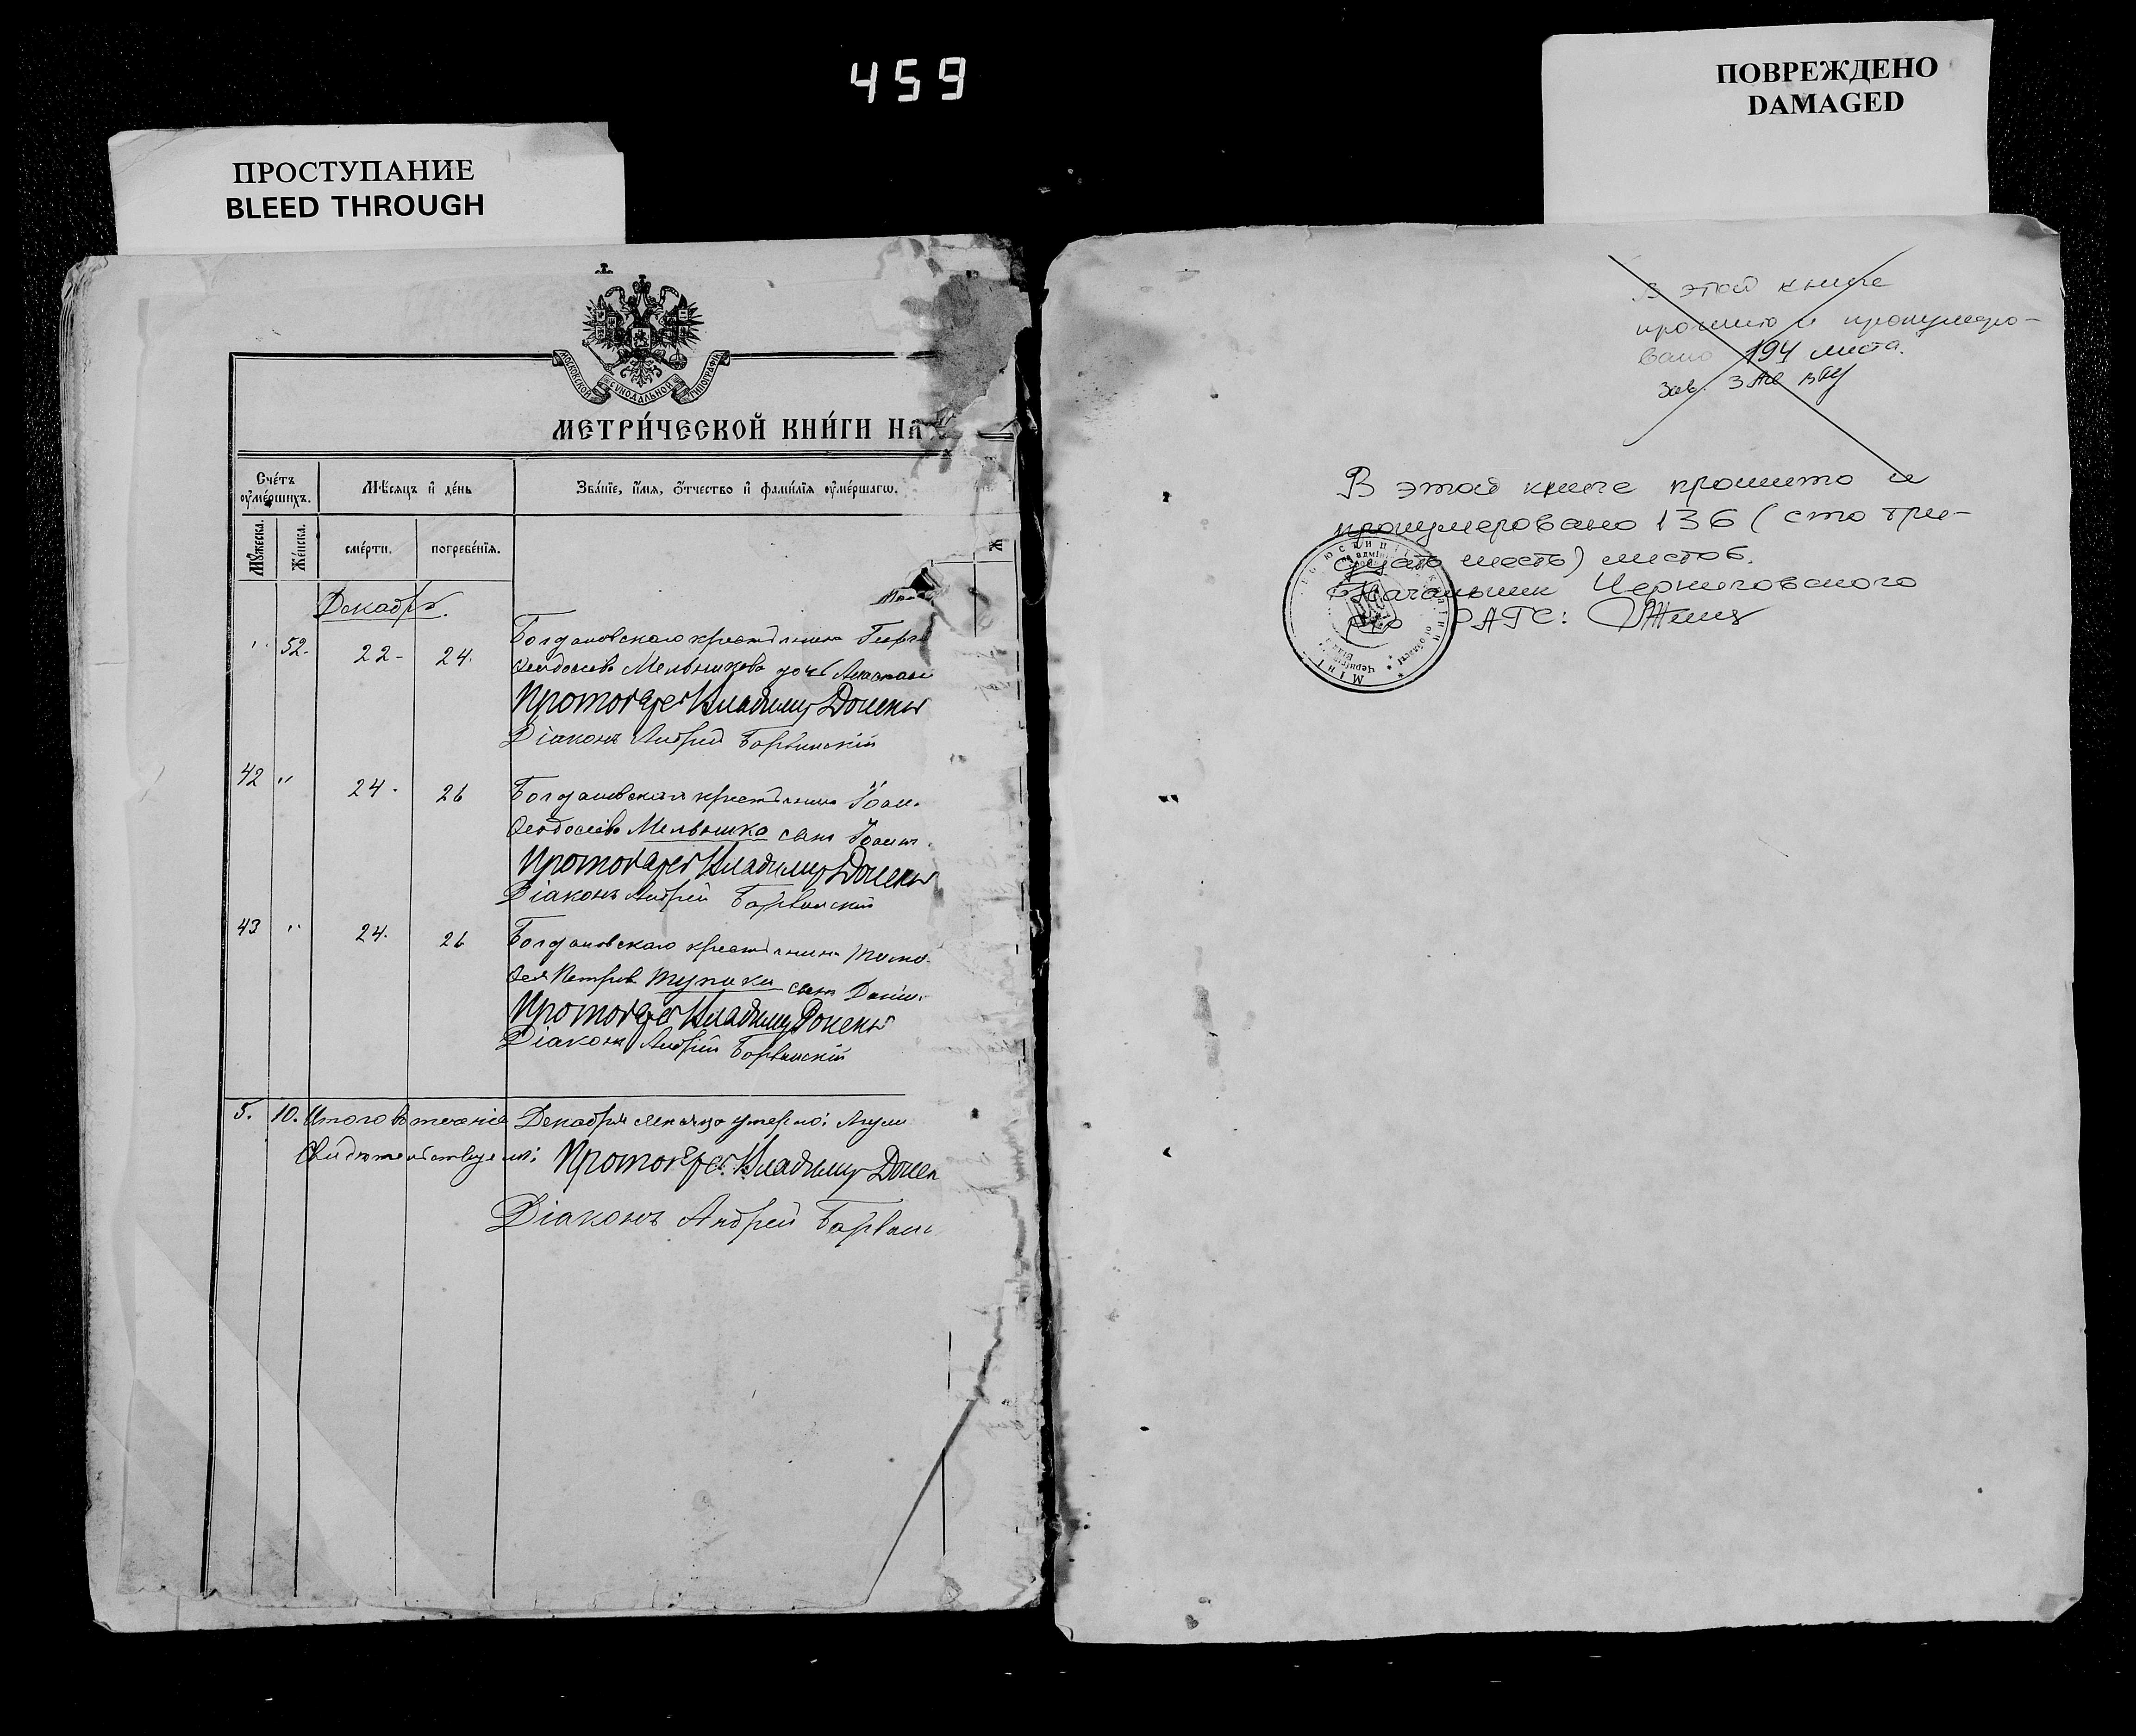 459
ПРОСТУПАНИЕ
BLEED THROUGH
ПОВРЕЖДЕНО
DAMAGED
МОСКОВСКОЙ СѴНОДАЛЬНОЙ ТИПОГРАФІИ
МЕТРИ́ЧЕСКОЙ КНИ́ГИ НА
Сче́тъ ᲂу҆ме́ршихъ.
Мѣ́сяцъ и҆ де́нь
Зва́нїе, и҆́мя, ѻ҆́тчество и҆ фами́лїя ᲂу҆ме́ршагѡ.
Мꙋ́жеска.
Же́нска.
сме́рти.
погребе́нїя.
Декабрь.
" 52. 22- 24. Болдановскаго крестьянина Георг
Ѳеодосіева Мельникова дочь Анастасі
Протоіерей Владимир Доцены
Діаконъ Андрей Барвинскій
42 " 24. 26 Болдановскаго крестьянина Іоан.
Ѳеодосіева Мельника сынъ Іоанн.
Протоіерей Владимир Доцены
Діаконъ Андрей Барвинскій
43 " 24. 26 Болдановскаго крестьянина Тимо.
Ѳея Петрова Тупика сынъ Даніи.
Протоіерей Владимир Доцены
Діаконъ Андрей Барвинскій
5. 10. Итого въ теченіе Декабря мѣсяца умерло:
Свидѣтельствуемъ: Протоіерей Владимир Доцен
Діаконъ Андрей Барвин
В этой книге
прошито и пронумеро-
вано 194 листа.
Зав.
В этой книге прошито и
пронумеровано 136 (сто три-
дцать шесть) листов.
Начальник Черниговского
РАГС: